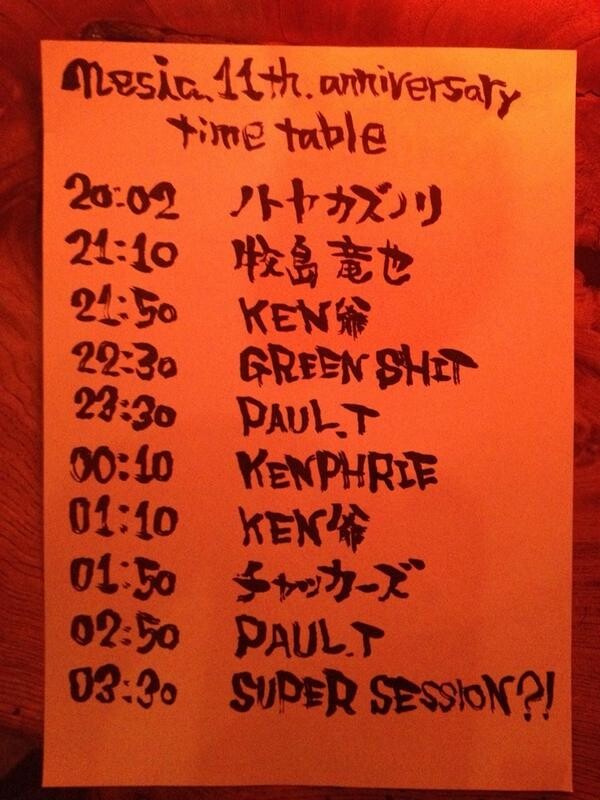 nesia.11th.anniversary
time table
20:02 ノトヤカズノリ
21:10 牧島竜也
21:50 KEN爺
22:30 GREEN SHIT
23:30 PAUL.T
00:10 KENPHRIE
01:10 KEN爺
01:50 チャッカーズ
02:50 PAUL.T
03:30 SUPER SESSION?!